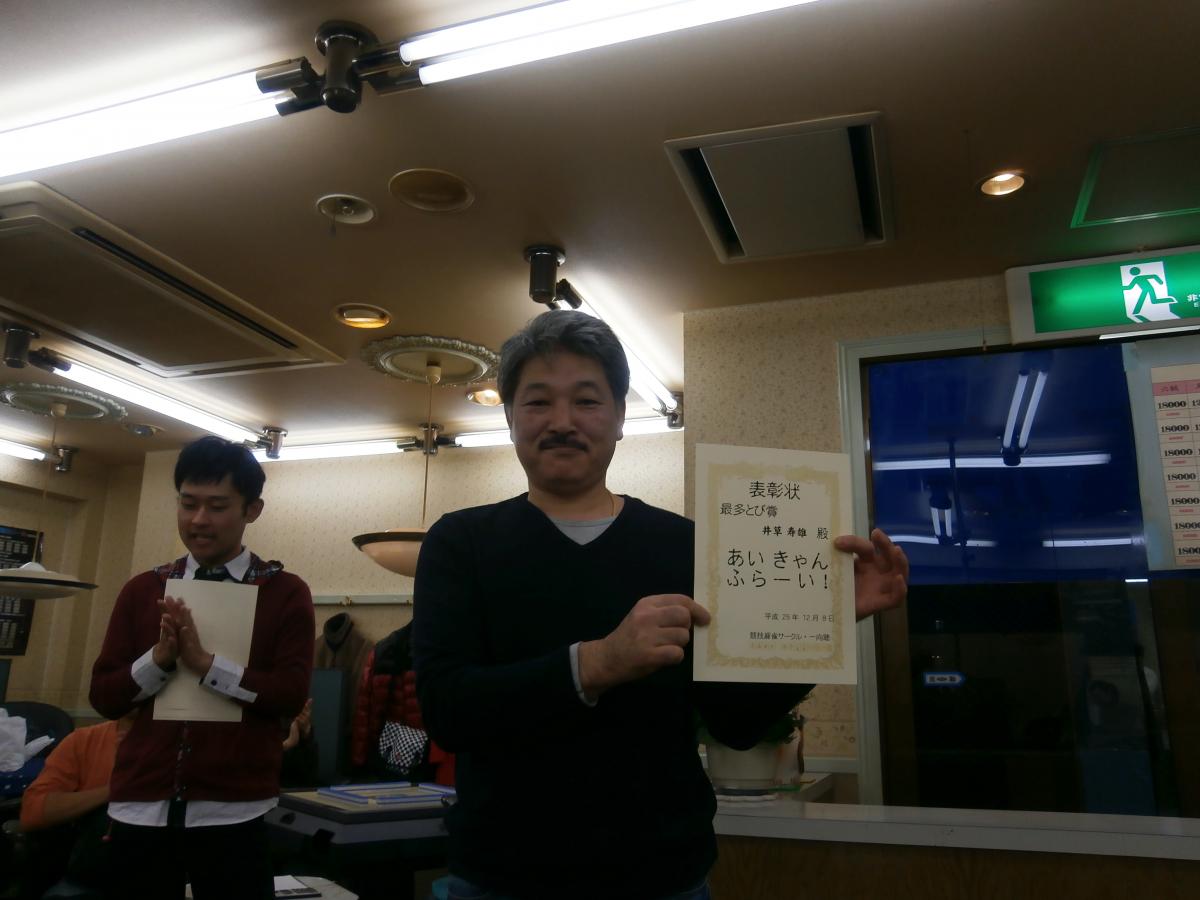 表彰状
最多とび賞
井草 寿雄 殿
あい きゃん
ふらーい!
平成 25年 12月 8日
競技麻雀サークル・一向聴
非
18000 12
18000
18000
18000
18000
18000
18000